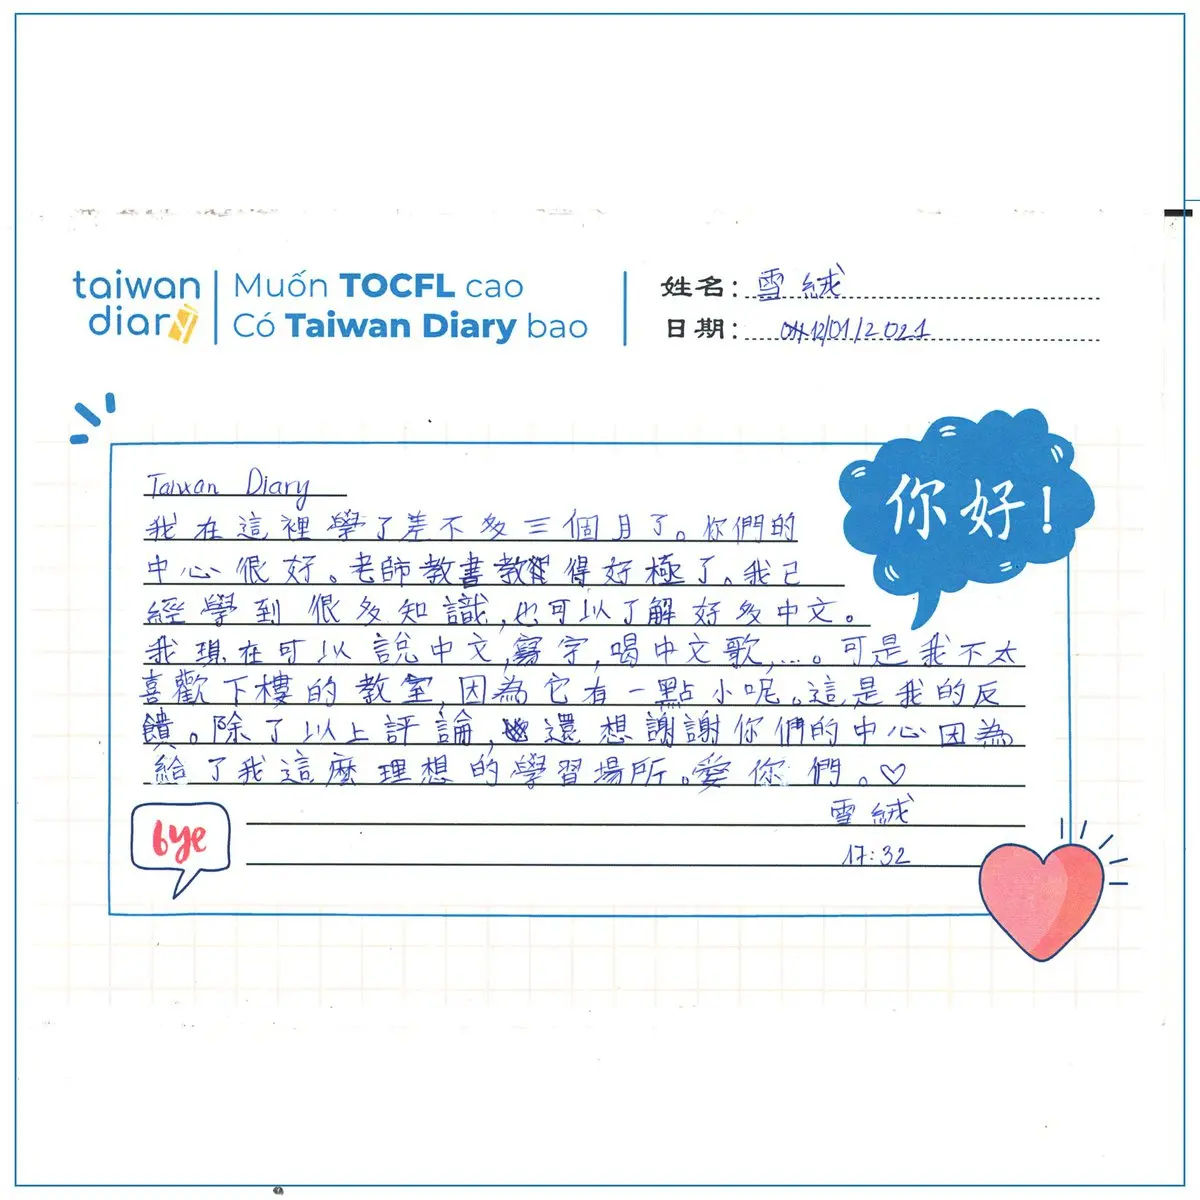 taiwan diary
Muốn TOCFL cao
Có Taiwan Diary bao
姓名: 雪絨
日期: 12/01/2021
你好!
Taiwan Diary
我在這裡學了差不多三個月了。你們的
中心很好。老師教書教得好極了。我已
經學到很多知識,也可以了解好多中文。
我現在可以說中文,寫字,喝中文歌,...。可是我不太
喜歡下樓的教室,因為它有一點小呢。這是我的反
饋。除了以上評論,還想謝謝你們的中心因為
給了我這麼理想的學習場所。愛你們。♡
雪絨
17:32
bye